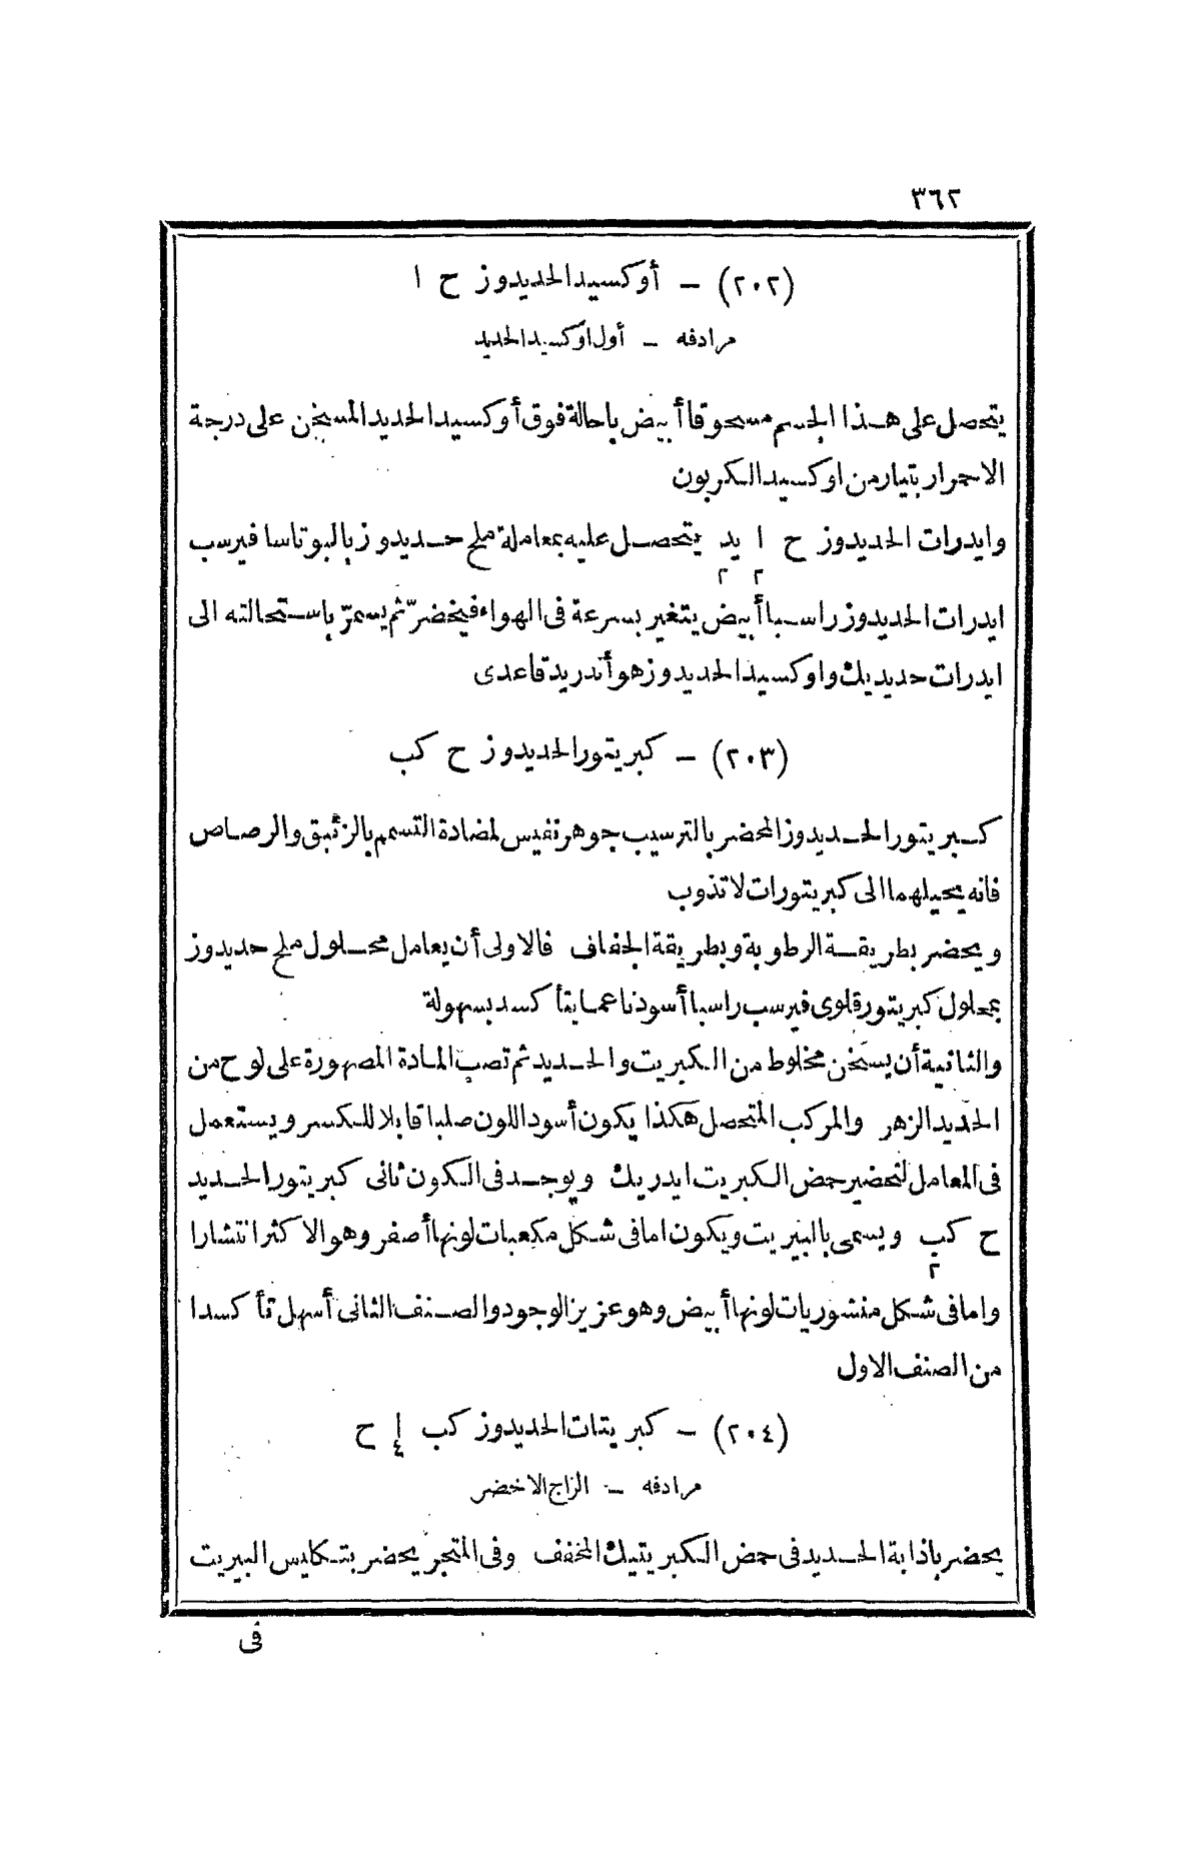 ٣٦٢
(٢٠٢) – أوكسيد الحديدوز ح ا
مرادفه – أول اوكسيد الحديد
يتحصل على هذا الجسم مسحوقا أبيض باحالة فوق أوكسيد الحديد المسخن على درجة
الاحمرار بتيار من اوكسيد الكربون
وايدرات الحديدوز ح ا يد يتحصل عليه بمعاملة ملح حديدوز بالبوتاسا فيرسب
٢ ٢
ايدرات الحديدوز راسبا أبيض يتغير بسرعة فى الهواء فيخضرّ ثم يسمرّ باستحالته الى
ايدرات حديديك واوكسيد الحديدوز هو أندريد قاعدى
(٢٠٣) – كبريتور الحديدوز ح كب
كبريتور الحديدوز المحضر بالترسيب جوهر نفيس لمضادة التسمم بالزئبق والرصاص
فانه يحيلهما الى كبريتورات لا تذوب
ويحضر بطريقة الرطوبة وبطريقة الجفاف فالاولى أن يعامل محلول ملح حديدوز
بمحلول كبريتور قلوى فيرسب راسبا أسود ناعما يتأكسد بسهولة
والثانية أن يسخن مخلوط من الكبريت والحديد ثم تصب المادة المصهورة على لوح من
الحديد الزهر والمركب المتحصل هكذا يكون أسود اللون صلبا قابلا للكسر ويستعمل
فى المعامل لتحضير حمض الكبريت ايدريك ويوجد فى الكون ثانى كبريتور الحديد
ح كب ويسمى بالبيريت ويكون اما فى شكل مكعبات لونها أصفر وهو الاكثر انتشارا
٢
واما فى شكل منشوريات لونها أبيض وهو عزيز الوجود والصنف الثانى أسهل تأكسدا
من الصنف الاول
(٢٠٤) – كبريتات الحديدوز كب ا٤ ح
مرادفه – الزاج الاخضر
يحضر باذابة الحديد فى حمض الكبريتيك المخفف وفى المتجر يحضر بتكليس البيريت
فى